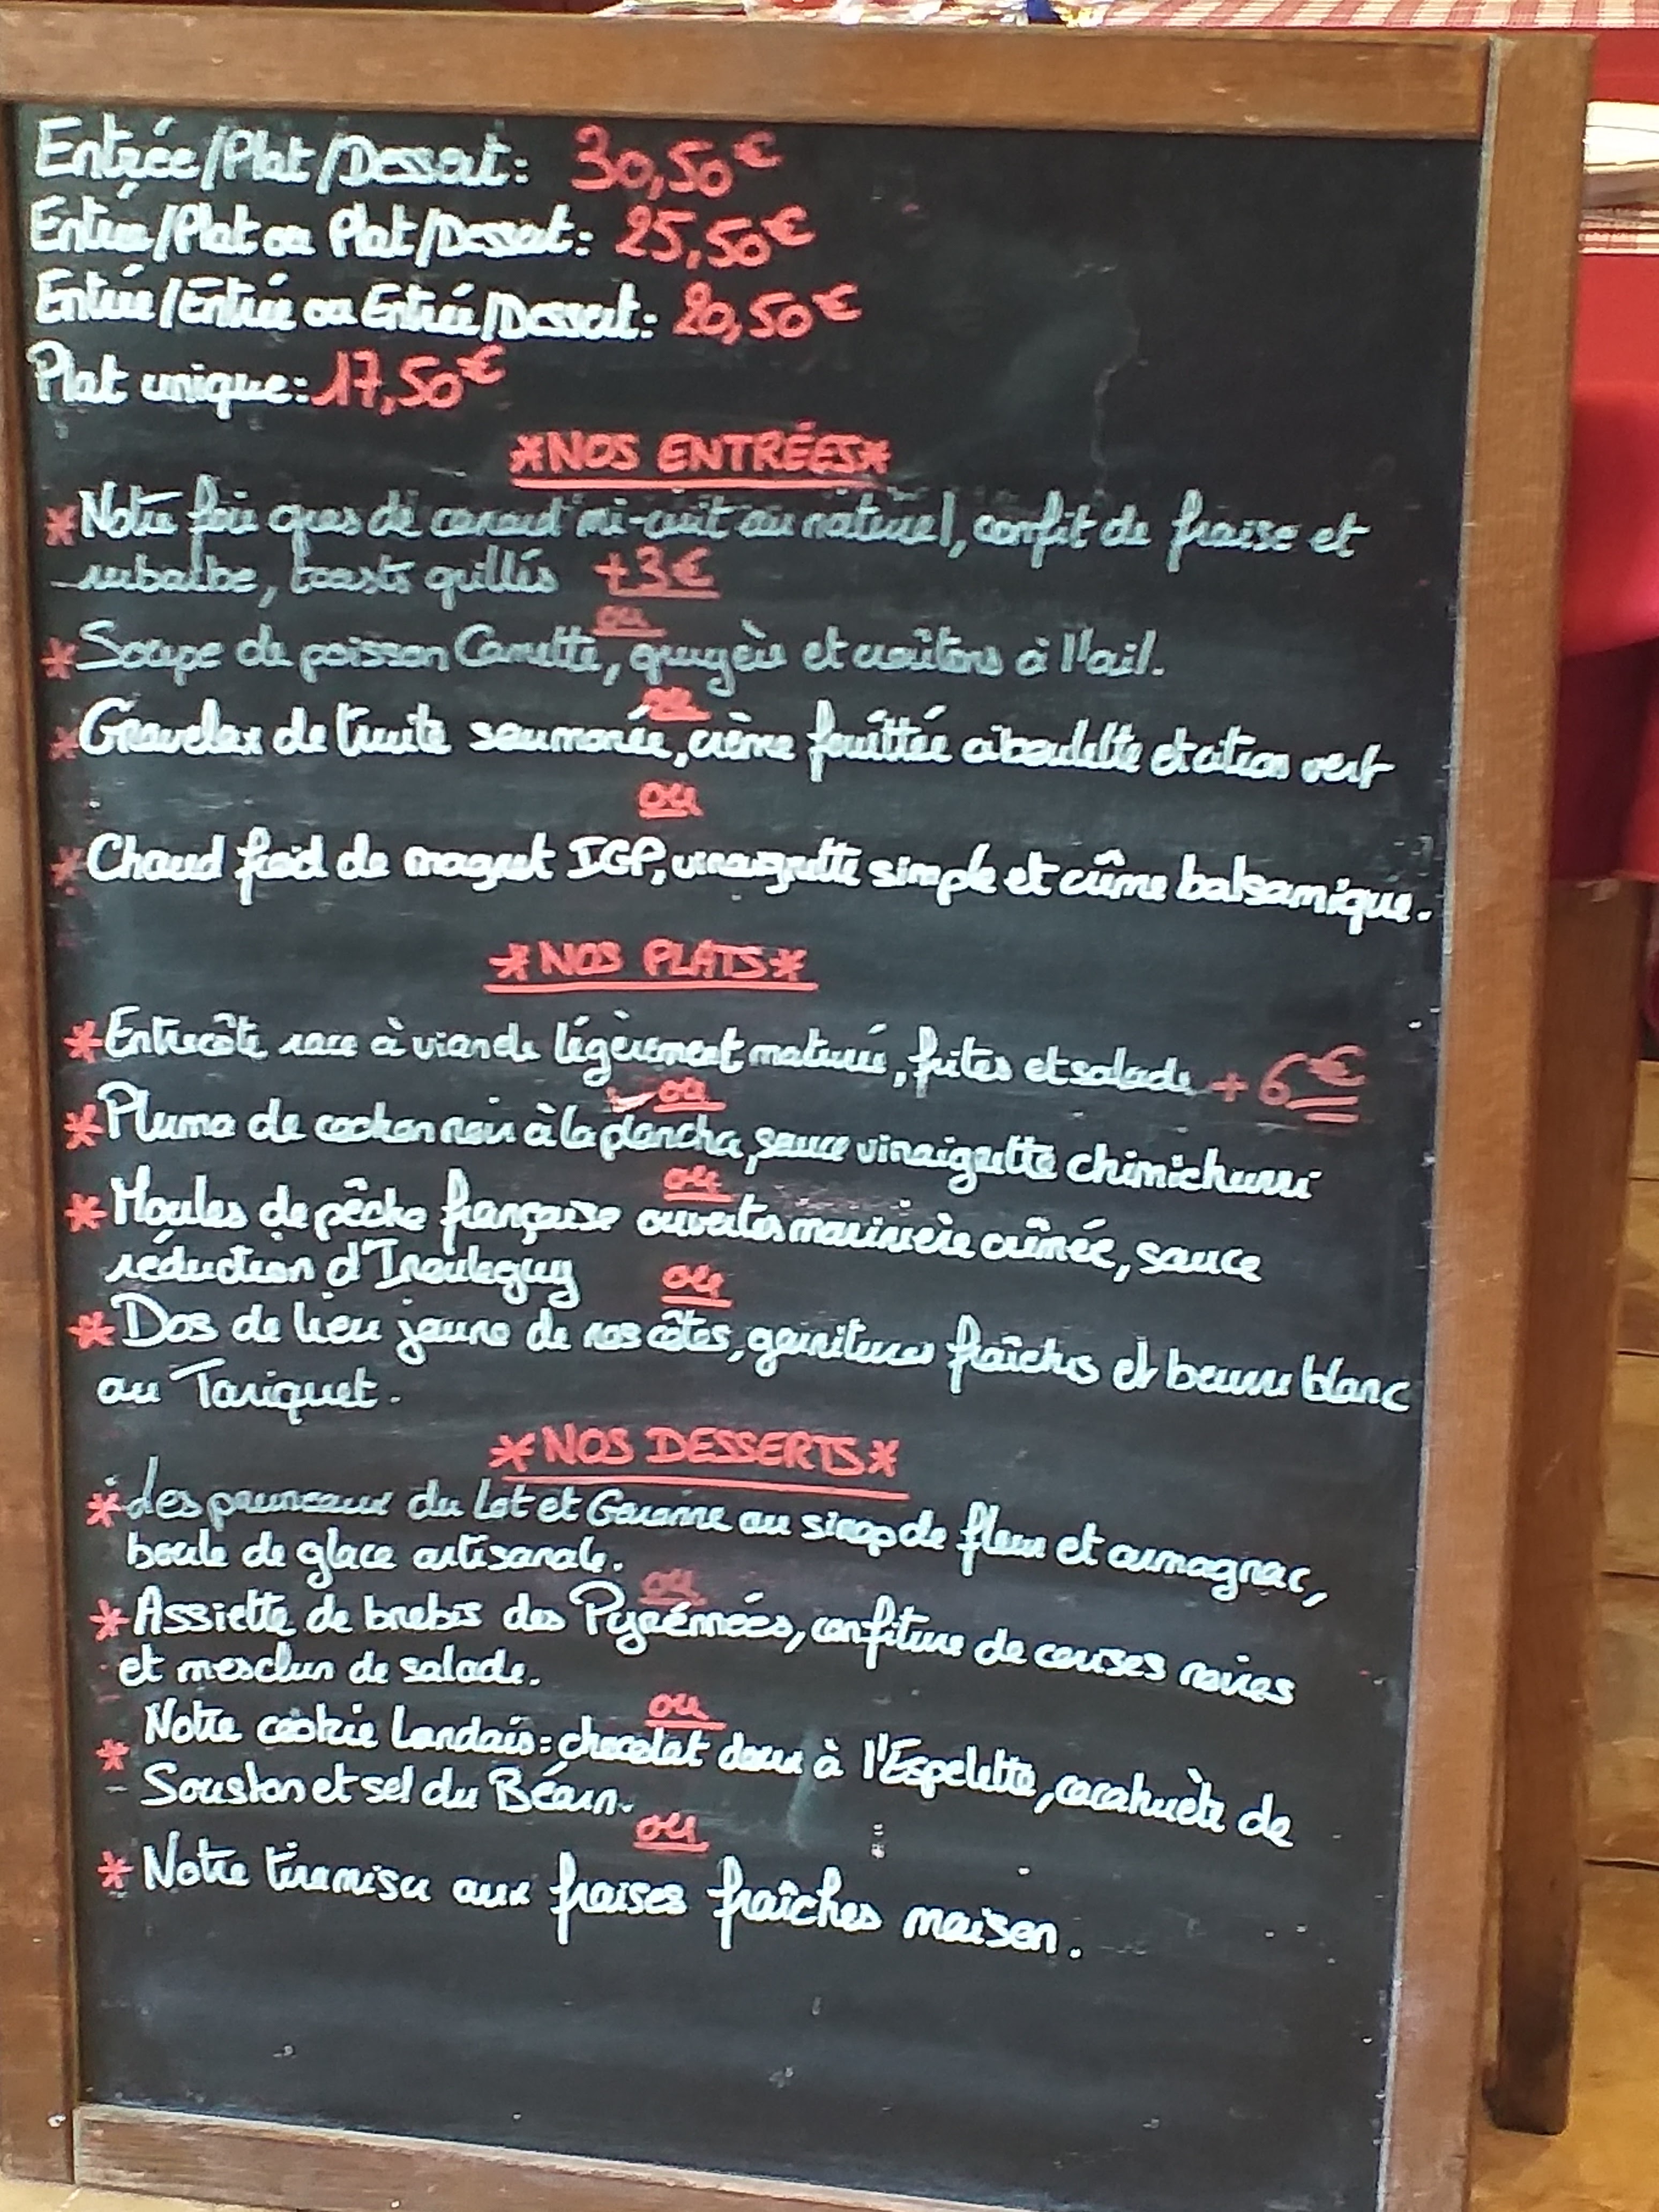 Entrée/Plat/Dessert: 30,50€
Entrée/Plat ou Plat/Dessert: 25,50€
Entrée/Entrée ou Entrée/Dessert: 20,50€
Plat unique: 17,50€
*NOS ENTRÉES*
*Notre foie gras de canard mi-cuit au naturel, confit de fraise et
rubarbe, toasts grillés +3€
ou
*Soupe de poisson Camette, gruyère et croûtons à l'ail.
ou
*Gravelax de truite saumonée, crème fouéttée ciboulette et citron vert
ou
*Chaud froid de magret IGP, vinaigrette simple et crème balsamique.
*NOS PLATS*
*Entrecôte race à viande légèrement maturée, frites et salade +6€
ou
*Pluma de cochon noir à la plancha, sauce vinaigrette chimichurri
ou
*Moules de pêche française ouvertes marinière crêmée, sauce
réduction d'Irouleguy
ou
*Dos de lieu jaune de nos côtes, garnitures fraîches et beurre blanc
au Tariquet.
*NOS DESSERTS*
*Les pruneaux du Lot et Garonne au sirop de fleur et armagnac,
boule de glace artisanale.
ou
*Assiette de brebis des Pyrénnées, confiture de cerises noires
et mesclun de salade.
ou
*Notre cookie Landais: chocolat doux à l'Espelette, cacahuète de
Souston et sel du Béarn.
ou
*Notre tiramisu aux fraises fraîches maison.